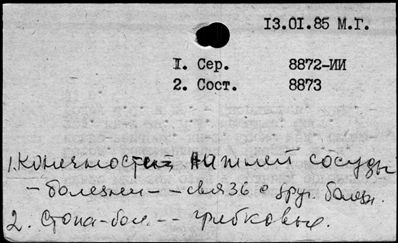 13.01.85 М.Г.
1. Сер. 8872-ИИ
2. Сост. 8873
1. Конечностей нижней сосуды
- болезни - - связь с друг. болезн.
2. Стопа-бол. - - грибковые.